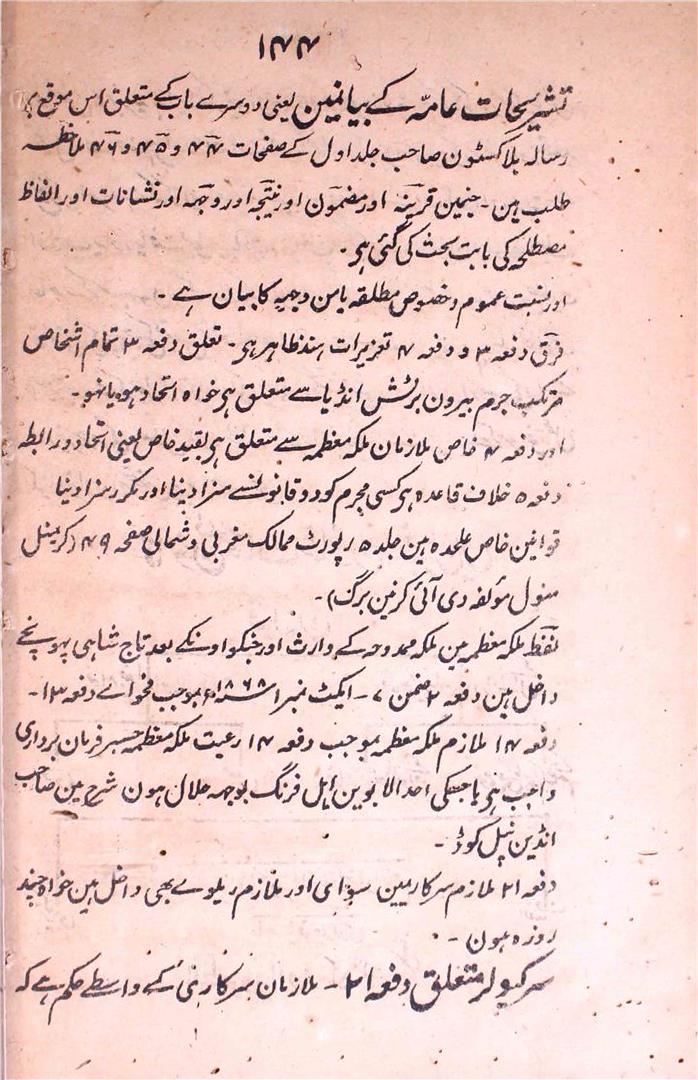 ۱۴۴
تشریحات عامہ کے بیانمین یعنی دوسرے باب کے متعلق اس موقع پر
رسالہ بلاکسٹون صاحب جلد اول کے صفحات ۴۴ و ۴۵ و ۴۶ ملاحظہ
طلب ہین - جنمین قرینہ اور مضمون اور نتیجہ اور وجہ اور نشانات اور الفاظ
مصطلحہ کی بابت بحث کی گئی ہی -
اور نسبت عموم و خصوص مطلقہ یا من وجہ کا بیان ہے -
فرق دفعہ ۳ و دفعہ ۴ تعزیرات ہند ظاہر ہی - تعلق دفعہ ۳ تمام اشخاص
مرتکب جرم بیرون برٹش انڈیا سے متعلق ہی خواہ اتحاد ہو یا نہو -
اور دفعہ ۴ خاص ملازمان ملکہ معظمہ سے متعلق ہی بقید خاص یعنی اتحاد و رابطہ
دفعہ ۵ خلاف قاعدہ ہی کسی مجرم کو دو قانونسے سزا دینا اور مکرر سزا دینا
قوانین خاص علحدہ ہین جلد ۵ رپورٹ ممالک مغربی و شمالی صفحہ ۴۹ (کریمنل
مینول مؤلفہ دی آئی کرنین برگ) -
لفظ ملکہ معظمہ مین ملکہ ممدوحہ کے وارث اور جنکو اونکے بعد تاج شاہی پہونچے
داخل ہین دفعہ ۲ ضمن ۷ - ایکٹ نمبر ۱ ۱۸۶۸ء بموجب فحواے دفعہ ۱۳ -
دفعہ ۱۴ ملازم ملکہ معظمہ بموجب دفعہ ۱۴ رعیت ملکہ معظمہ جسپر فرمان برداری
واجب ہی یا جسکی احد الابوین اہل فرنگ بوجہ حلال ہون شرح مین صاحب
انڈین پنل کوڈ -
دفعہ ۲۱ ملازم سرکار مین سپاہی اور ملازم ریلوے بھی داخل ہین خواہ چند
روزہ ہون -
سرکیولر متعلق دفعہ ۲۱ - ملازمان سرکاری کے واسطے حکم ہے کہ